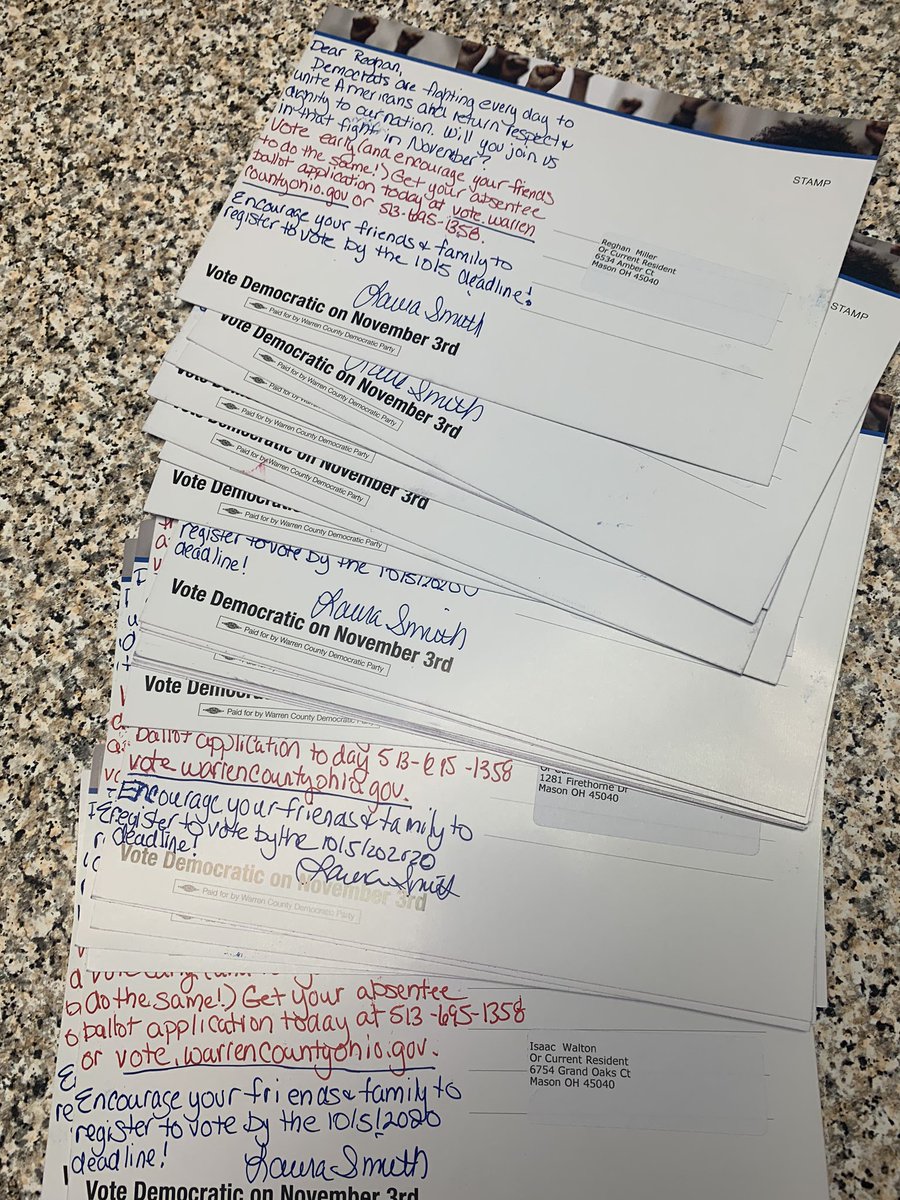 Dear Reghan,
Democrats are fighting every day to
unite Americans and return respect &
dignity to our nation. Will you join us
in that fight in November?
Vote early (and encourage your friends
to do the same!) Get your absentee
ballot application today at vote.warren
countyohio.gov or 513-695-1358.
Encourage your friends & family to
register to vote by the 10/5 deadline!
Laura Smith
Vote Democratic on November 3rd
Paid for by Warren County Democratic Party
STAMP
Reghan Miller
Or Current Resident
6534 Amber Ct
Mason OH 45040
STAMP
Laura Smith
Vote Democratic on November 3rd
Paid for by Warren County Democratic Party
Vote
Paid for by Warren County Democratic Party
Vote
November 3rd
Paid for by Warren County Democratic Party
Vote Democratic
Paid for by Warren County Democratic Party
register to vote by the 10/5/2020
deadline!
Laura Smith
Vote Democratic on November 3rd
Paid for by Warren County Democratic Party
Vote Democratic
Paid for by Warren County Democratic Party
ballot application today 513-695-1358
vote.warrencountyohio.gov.
Encourage your friends & family to
register to vote by the 10/5/202020
deadline!
Laura Smith
Vote Democratic on November 3rd
Paid for by Warren County Democratic Party
1281 Firethorne Dr
Mason OH 45040
do the same!) Get your absentee
ballot application today at 513-695-1358
or vote.warrencountyohio.gov.
Encourage your friends & family to
register to vote by the 10/5/2020
deadline!
Laura Smith
Vote Democratic on November 3rd
Isaac Walton
Or Current Resident
6754 Grand Oaks Ct
Mason OH 45040